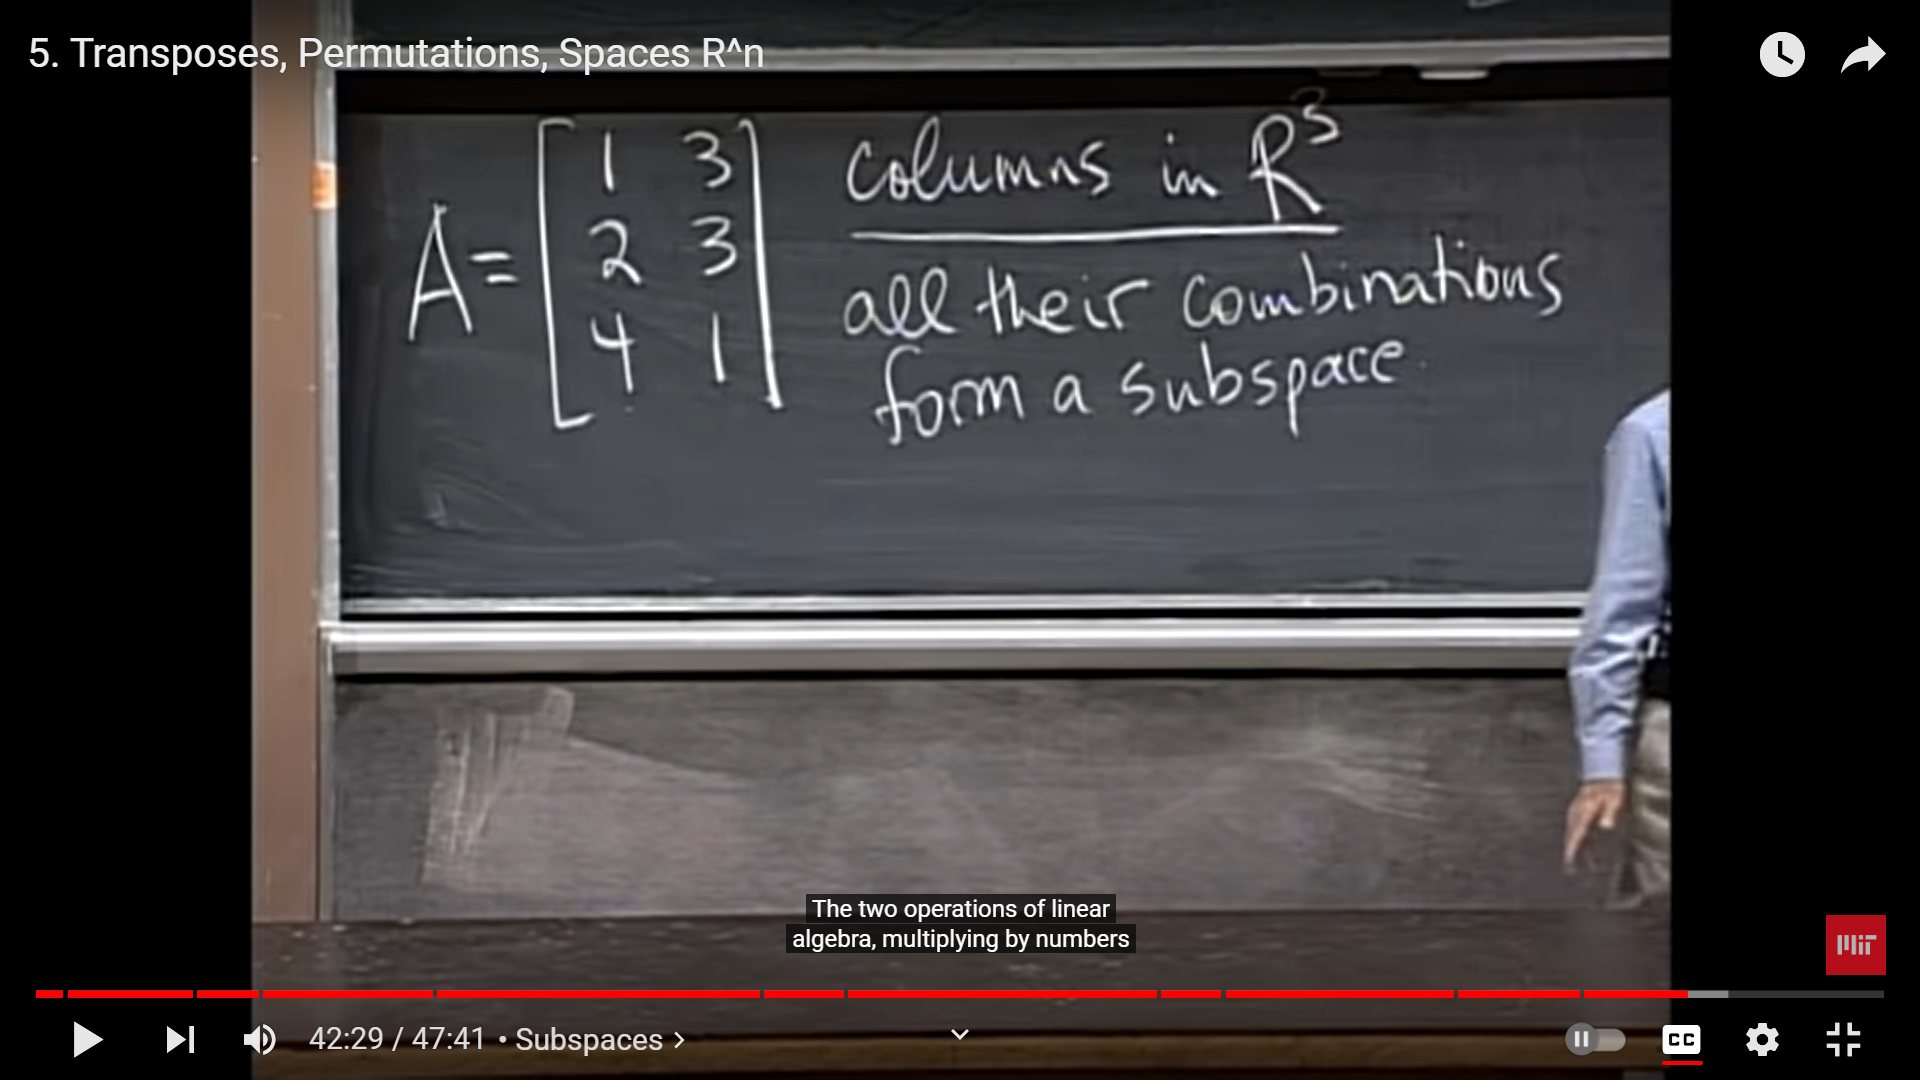 5. Transposes, Permutations, Spaces R^n
A = [1 3
2 3
4 1]
columns in R³
all their combinations
form a subspace
The two operations of linear
algebra, multiplying by numbers
MIT
42:29 / 47:41 • Subspaces >
CC